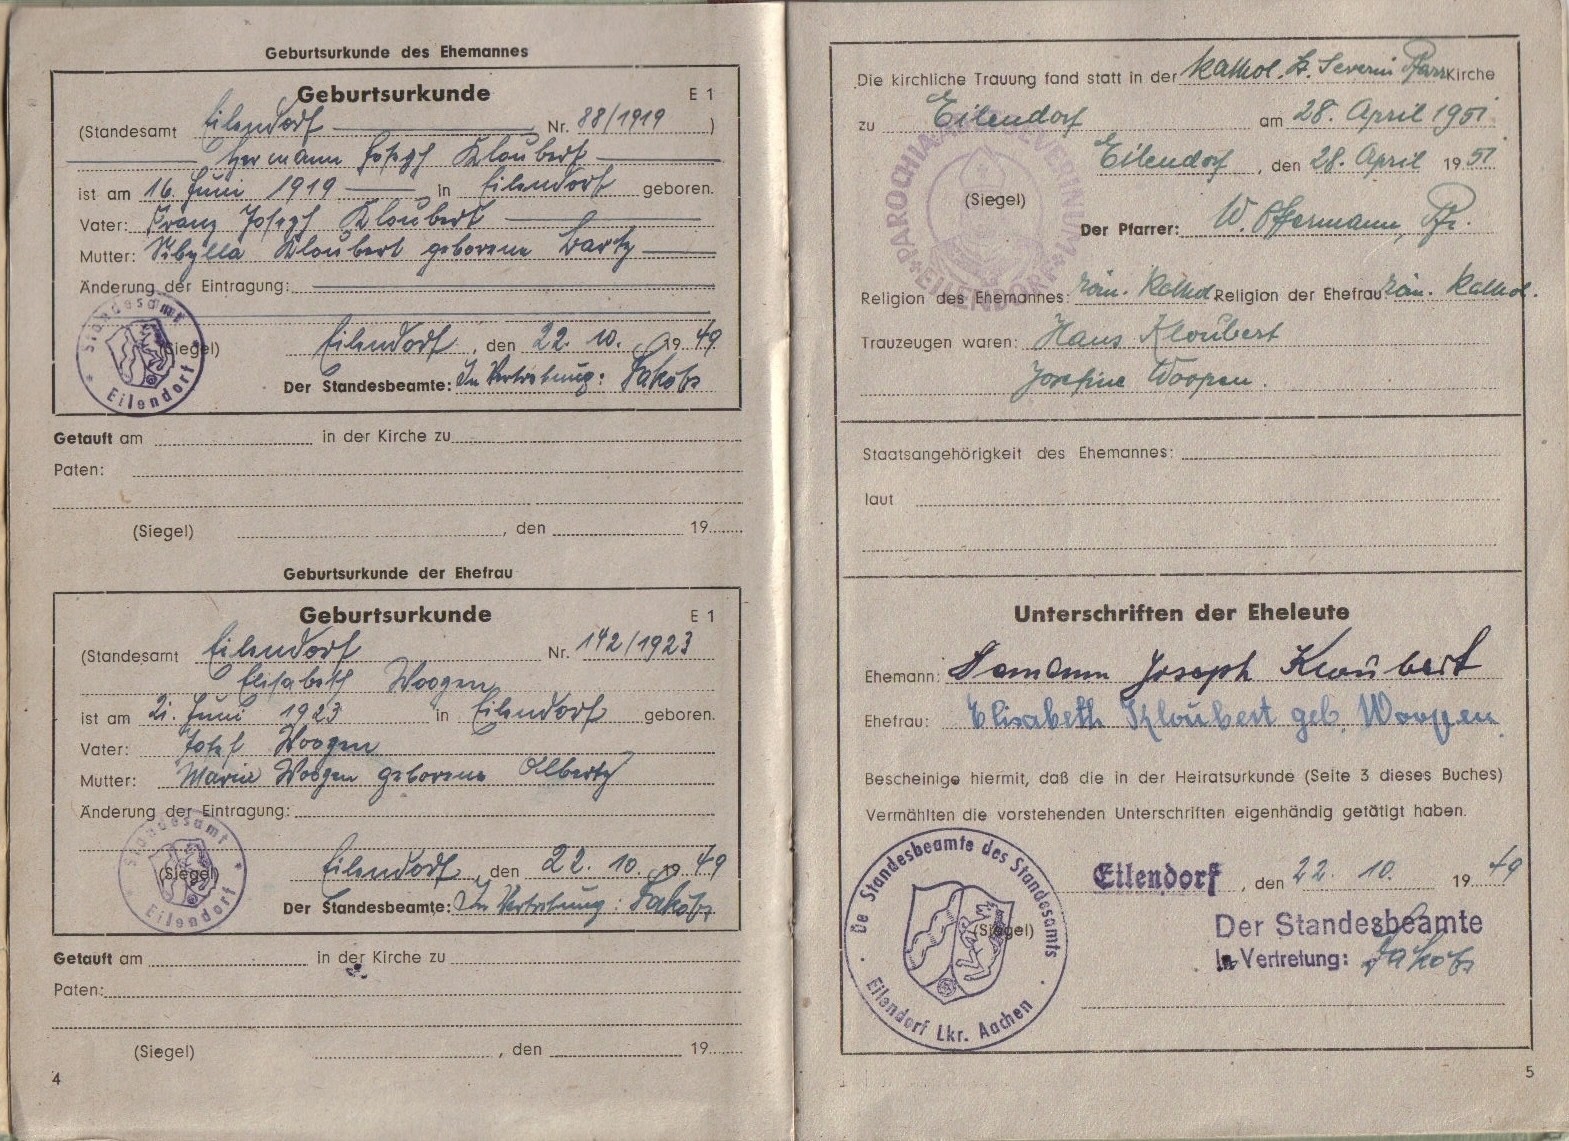 Geburtsurkunde des Ehemannes
Geburtsurkunde E 1
(Standesamt Eilendorf Nr. 88/1919 )
Hermann Joseph Kloubert
ist am 16. Juni 1919 in Eilendorf geboren.
Vater: Franz Joseph Kloubert
Mutter: Sibylla Kloubert geborene Bartz
Änderung der Eintragung:
Standesamt
(Siegel)
Eilendorf
Eilendorf, den 22. 10. 1949
Der Standesbeamte: In Vertretung: Jakobs
Getauft am in der Kirche zu
Paten:
(Siegel) , den 19
Geburtsurkunde der Ehefrau
Geburtsurkunde E 1
(Standesamt Eilendorf Nr. 142/1923
Elisabeth Woopen
ist am 21. Juni 1923 in Eilendorf geboren.
Vater: Josef Woopen
Mutter: Maria Woopen geborene Olbertz
Änderung der Eintragung:
Standesamt
(Siegel)
Eilendorf
Eilendorf, den 22. 10. 1949
Der Standesbeamte: In Vertretung: Jakobs
Getauft am in der Kirche zu
Paten:
(Siegel) , den 19
4
Die kirchliche Trauung fand statt in der kathol. St. Severin Pfarrkirche
zu Eilendorf am 28. April 1951
Eilendorf, den 28. April 1951
(Siegel)
EILENDORF
Der Pfarrer: W. Offermann, Pfr.
Religion des Ehemannes: röm. kathol. Religion der Ehefrau röm. kathol.
Trauzeugen waren: Hans Kloubert
Josefine Woopen.
Staatsangehörigkeit des Ehemannes:
laut
Unterschriften der Eheleute
Ehemann: Hermann Joseph Kloubert
Ehefrau: Elisabeth Kloubert geb. Woopen
Bescheinige hiermit, daß die in der Heiratsurkunde (Seite 3 dieses Buches)
Vermählten die vorstehenden Unterschriften eigenhändig getätigt haben.
De Standesbeamte des Standesamts
(Siegel)
Eilendorf Lkr. Aachen
Eilendorf, den 22. 10. 1949
Der Standesbeamte
In Vertretung: Jakobs
5